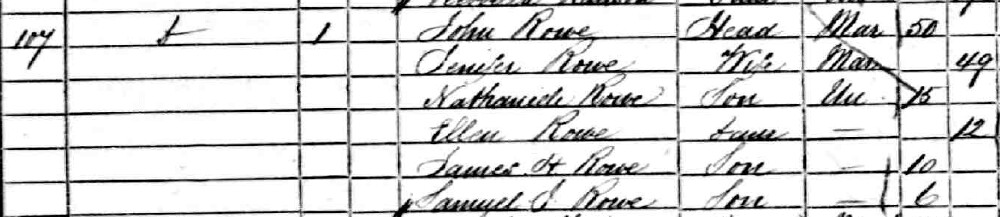 107 1 John Rowe Head Mar 50
Jenifer Rowe Wife Mar 49
Nathaniel Rowe Son Un 15
Ellen Rowe — 12
James H Rowe Son — 10
Samuel J Rowe Son — 6